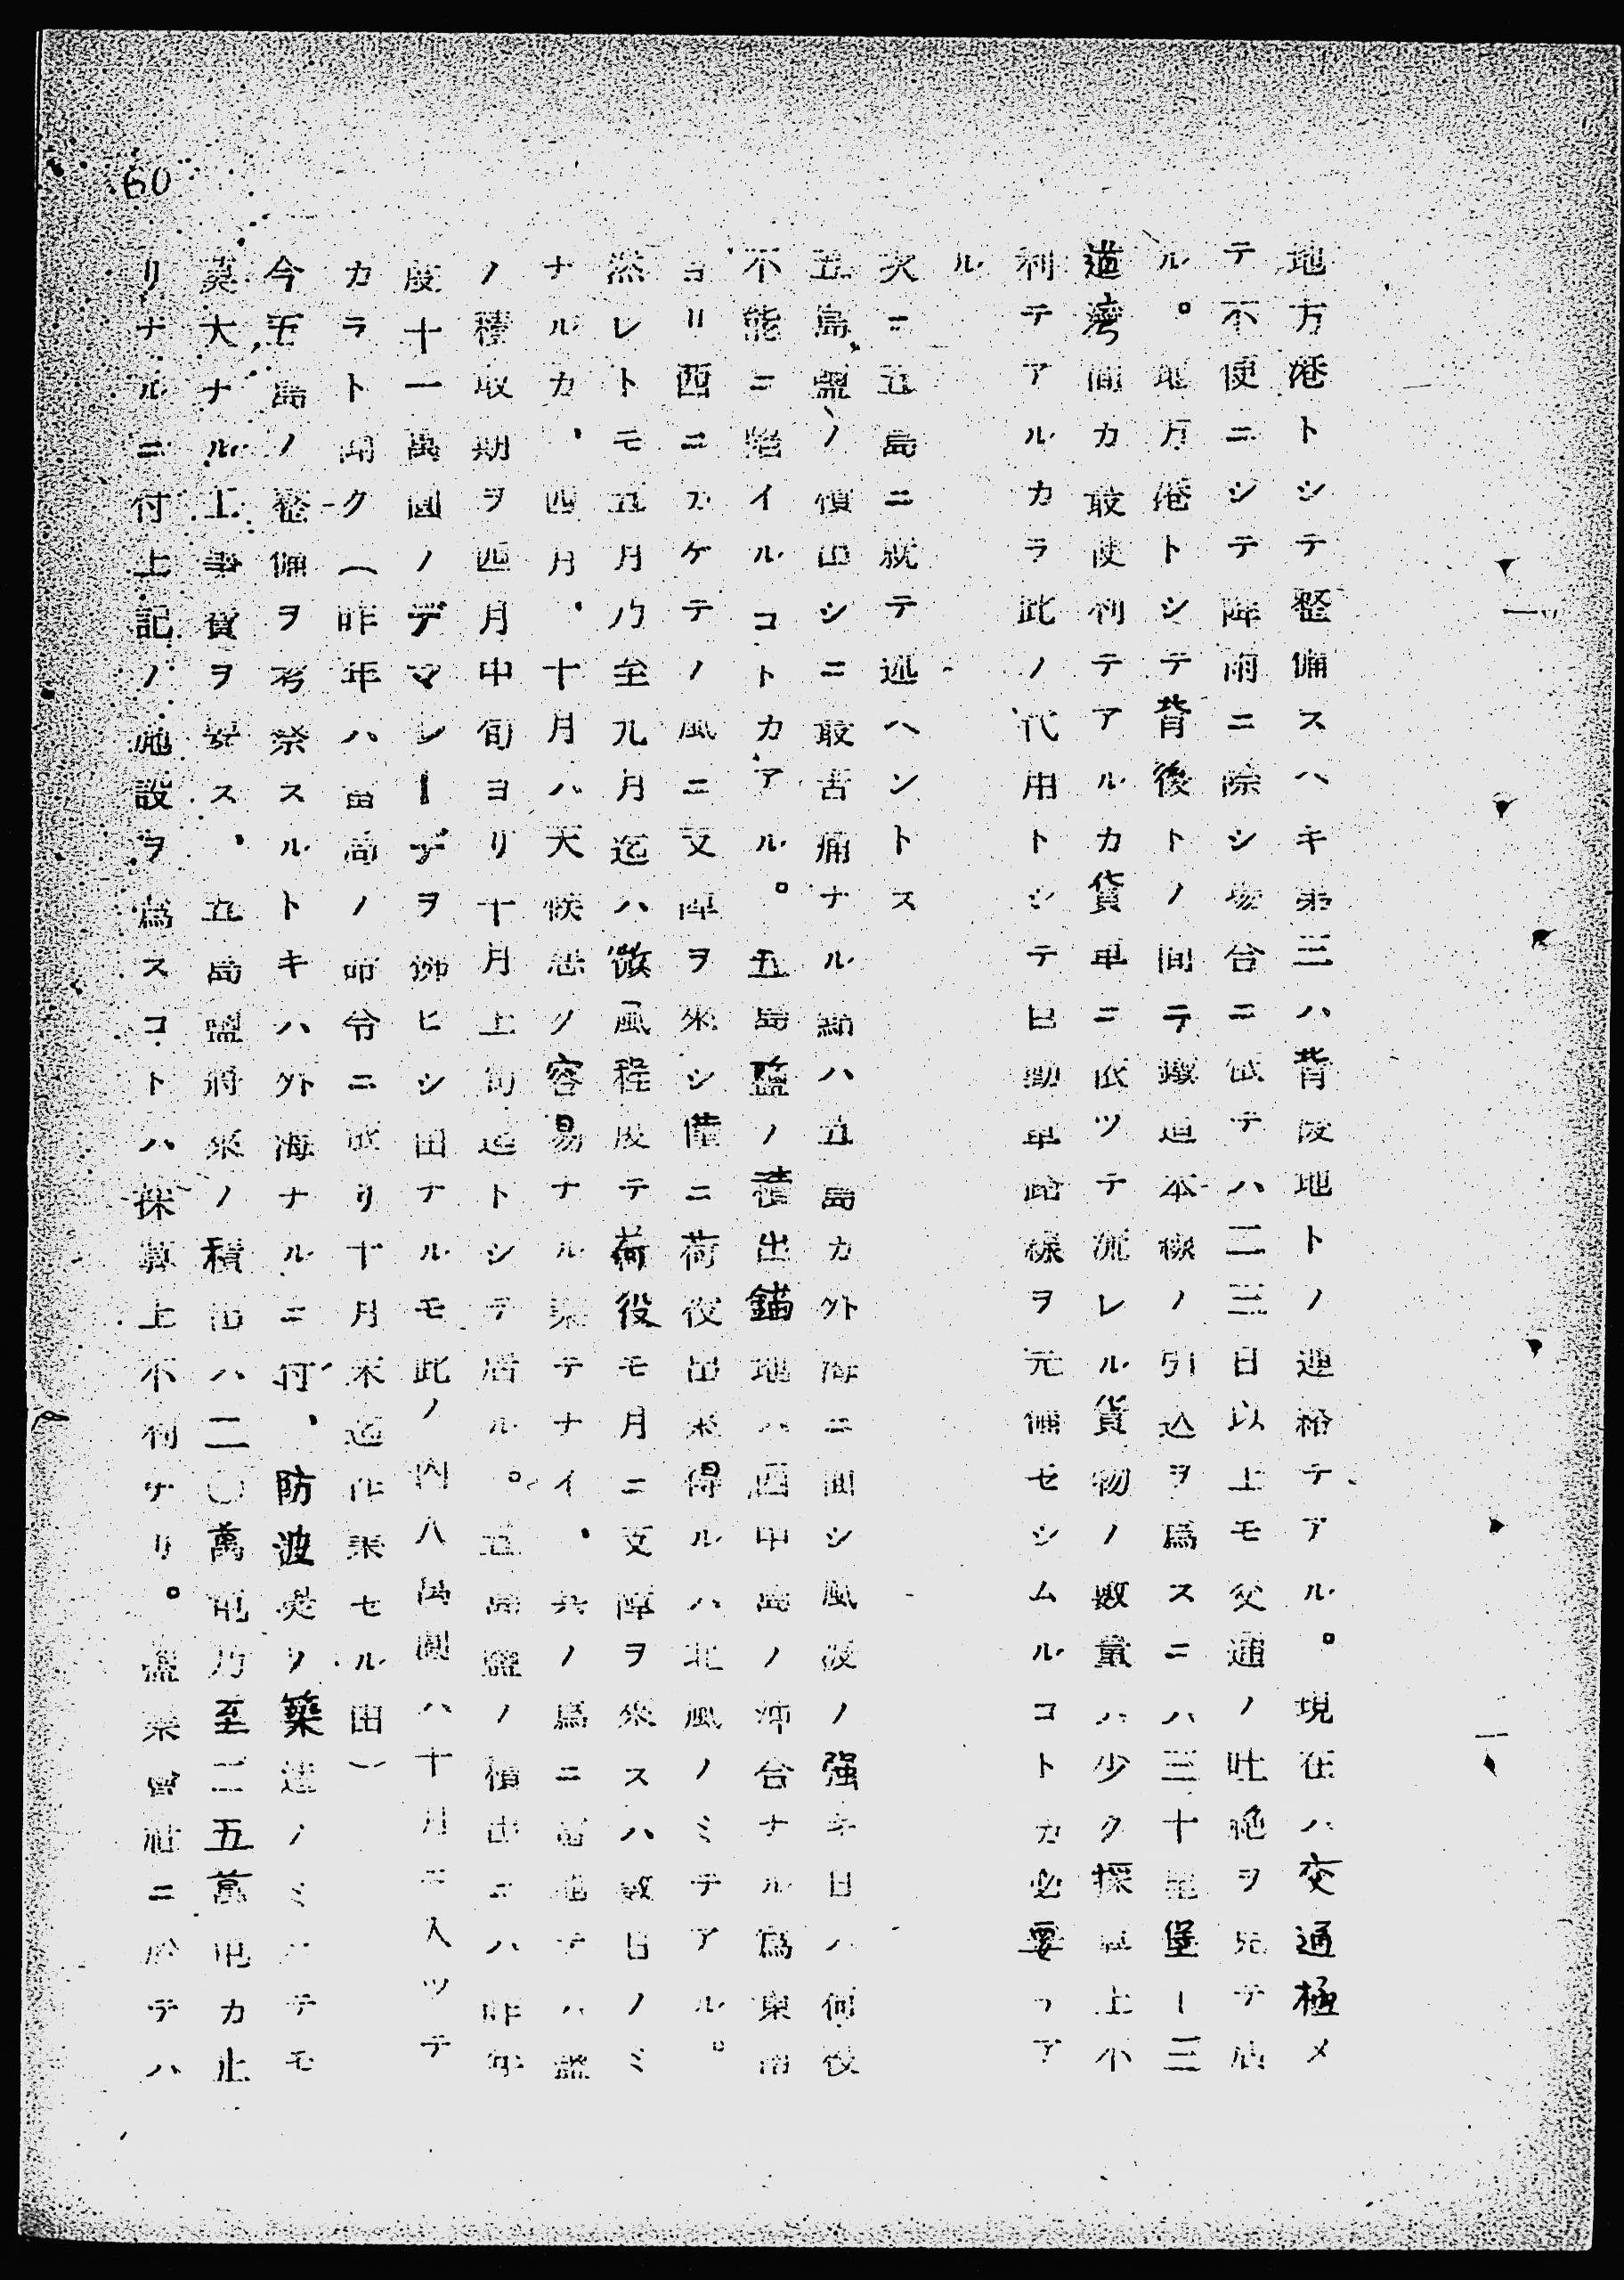 60
地方港トシテ整備スヘキ第三ハ背後地トノ連絡テアル。現在ハ交通極メ
テ不便ニシテ降雨ニ際シ場合ニ依テハ二三日以上モ交通ノ杜絶ヲ見テ居
ル。地方港トシテ背後トノ間ニ鐵道本線ノ引込ヲ爲スニハ三十里堡ー三
道灣間カ最便利テアルカ貨車ニ依ツテ流レル貨物ノ數量ハ少ク採算上不
利テアルカラ此ノ代用トシテ自動車路線ヲ完備セシムルコトカ必要テア
ル
次ニ五島ニ就テ述ヘントス
五島鹽ノ積出シニ最苦痛ナル點ハ五島カ外海ニ面シ風波ノ强キ日ハ荷役
不能ニ陷イルコトカアル。五島鹽ノ積出錨地ハ西中島ノ沖合ナル爲東南
ヨリ西ニカケテノ風ニ支障ヲ來シ僅ニ荷役出來得ルハ北風ノミテアル。
然レトモ五月乃至九月迄ハ微風程度テ荷役モ月ニ支障ヲ來スハ數日ノミ
ナルカ、四月、十月ハ天候惡ク容易ナル業テナイ、共ノ爲ニ當地テハ鹽
ノ積取期ヲ四月中旬ヨリ十月上旬迄トシテ居ル。五島鹽ノ積出ニハ昨年
度十一萬圓ノデマレーヂヲ拂ヒシ由ナルモ此ノ内八萬圓ハ十月ニ入ツテ
カラト聞ク（昨年ハ當局ノ命令ニ依リ十月末迄作業セル由）
今五島ノ整備ヲ考察スルトキハ外海ナルニ付、防波堤ノ築造ノミニテモ
莫大ナル工事費ヲ要ス、五島鹽將來ノ積出ハ二〇萬瓲乃至二五萬瓲カ止
リナルニ付上記ノ施設ヲ爲スコトハ採算上不利ナリ。鹽業會社ニ於テハ